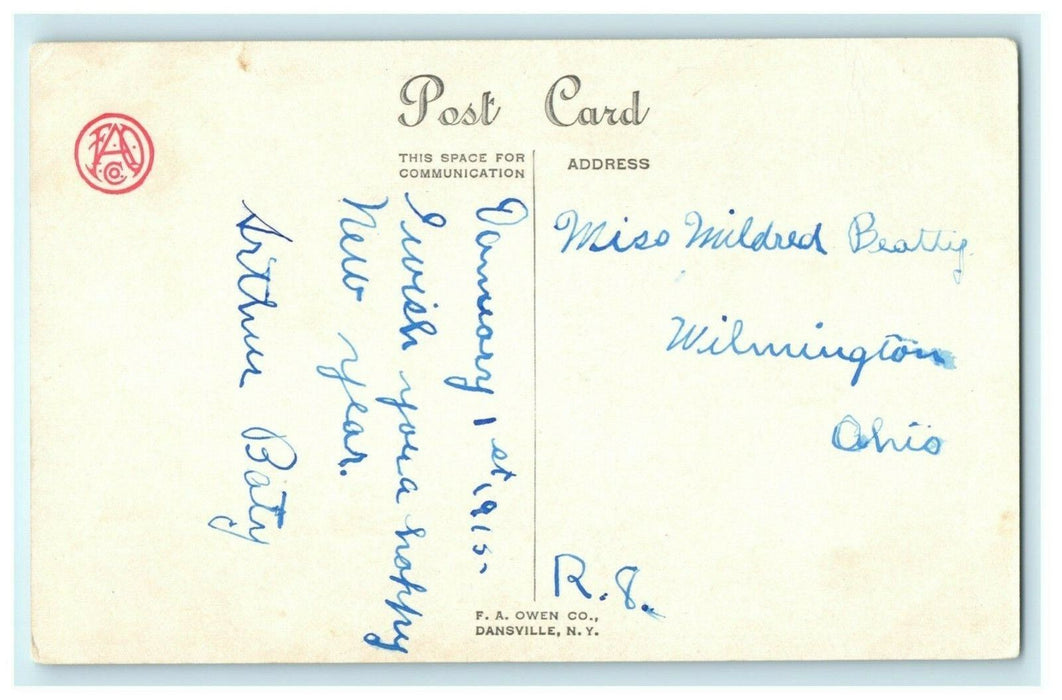 Post Card
FAO
Co.
THIS SPACE FOR
COMMUNICATION
ADDRESS
January 1st 1915
I wish you a happy
New year.
Arthur Baty
Miss Mildred Beatty
Wilmington
Ohio
R. 8.
F. A. OWEN CO.,
DANSVILLE, N. Y.